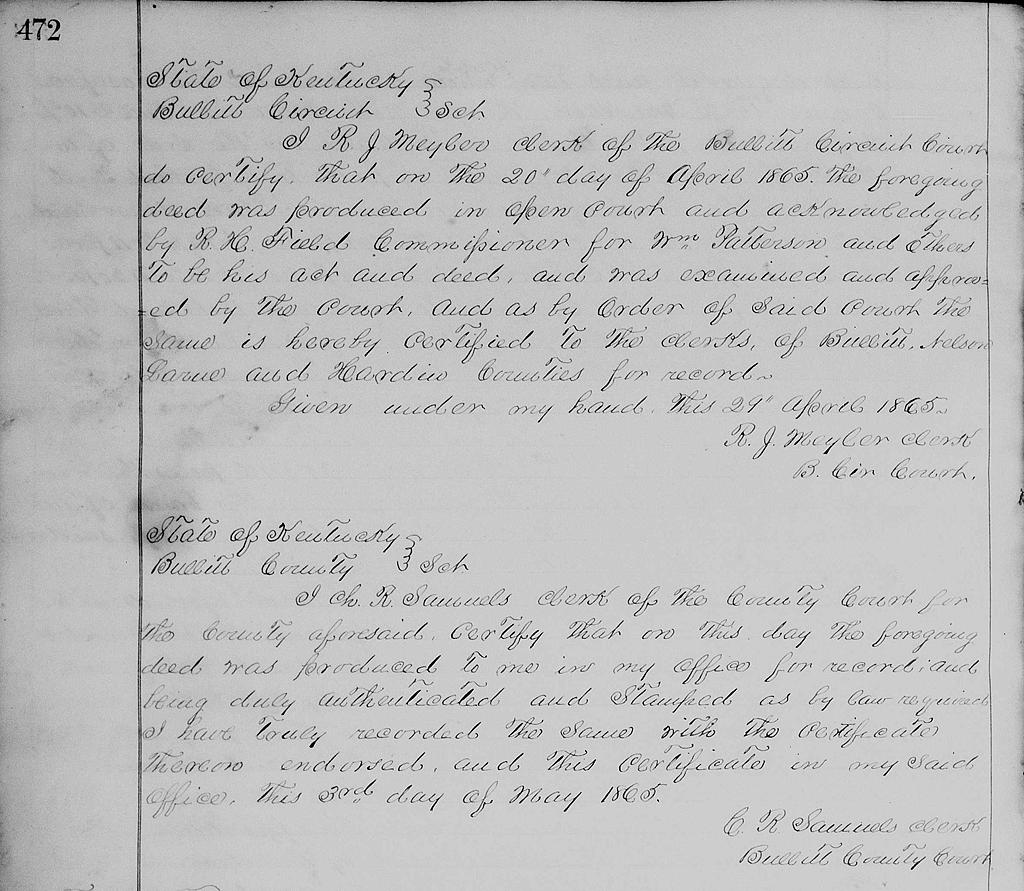 472
State of Kentucky }
Bullitt Circuit } Sct
I R. J. Meyler clerk of the Bullitt Circuit Court
do certify. that on the 20" day of April 1865. the foregoing
deed was produced in open court and acknowledged
by R. H. Field Commissioner for Wm Patterson and others
to be his act and deed, and was examined and approv=
=ed by the court, and as by order of said court the
same is hereby certified to the clerks, of Bullitt, Nelson
Larue and Hardin Counties for record~
Given under my hand. this 29" April 1865~
R. J. Meyler clerk
B. Cir Court.
State of Kentucky }
Bullitt County } Sct
I Ch. R. Samuels clerk of the County Court for
the County aforesaid. certify that on this day the foregoing
deed was produced to me in my office for record; and
being duly authenticated and stamped as by law required
I have truly recorded the same with the certificate
thereon endorsed. and this certificate in my said
office. this 3rd day of May 1865.
C. R. Samuels clerk
Bullitt County Court